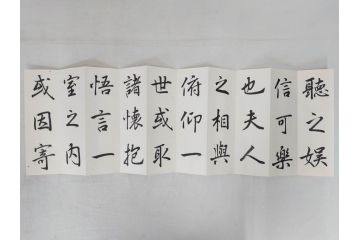 聽之娛
信可樂
也夫人
之相與
俯仰一
世或取
諸懷抱
悟言一
室之內
或因寄